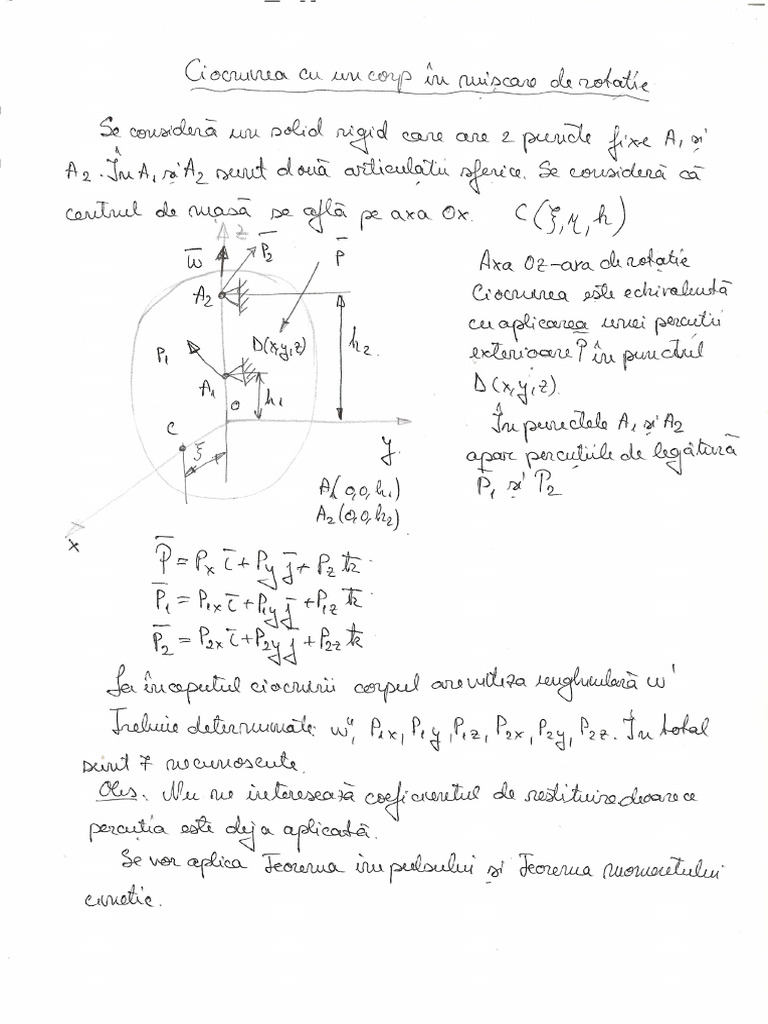 Ciocnirea cu un corp în mișcare de rotație
Se consideră un solid rigid care are 2 puncte fixe A₁ și
A₂. În A₁ și A₂ sunt două articulații sferice. Se consideră că
centrul de masă se află pe axa Ox. C(ξ,η,h)
z
ω̄
P̄₂
P̄
A₂
P₁
D(x,y,z)
h₂
A₁
h₁
O
C
ξ
y
x
A₁(0,0,h₁)
A₂(0,0,h₂)
Axa Oz - axa de rotație
Ciocnirea este echivalentă
cu aplicarea unei percuții
exterioare P̄ în punctul
D(x,y,z).
În punctele A₁ și A₂
apar percuțiile de legătură
P̄₁ și P̄₂
P̄ = Pₓ ī + P_y j̄ + P_z k̄
P̄₁ = P₁ₓ ī + P₁y j̄ + P₁z k̄
P̄₂ = P₂ₓ ī + P₂y j̄ + P₂z k̄
La începutul ciocnirii corpul are viteza unghiulară ω'
Trebuie determinate: ω'', P₁x, P₁y, P₁z, P₂x, P₂y, P₂z. În total
sunt 7 necunoscute.
Obs. Nu ne interesează coeficientul de restituire deoarece
percuția este deja aplicată.
Se vor aplica Teorema impulsului și Teorema momentului
cinetic.